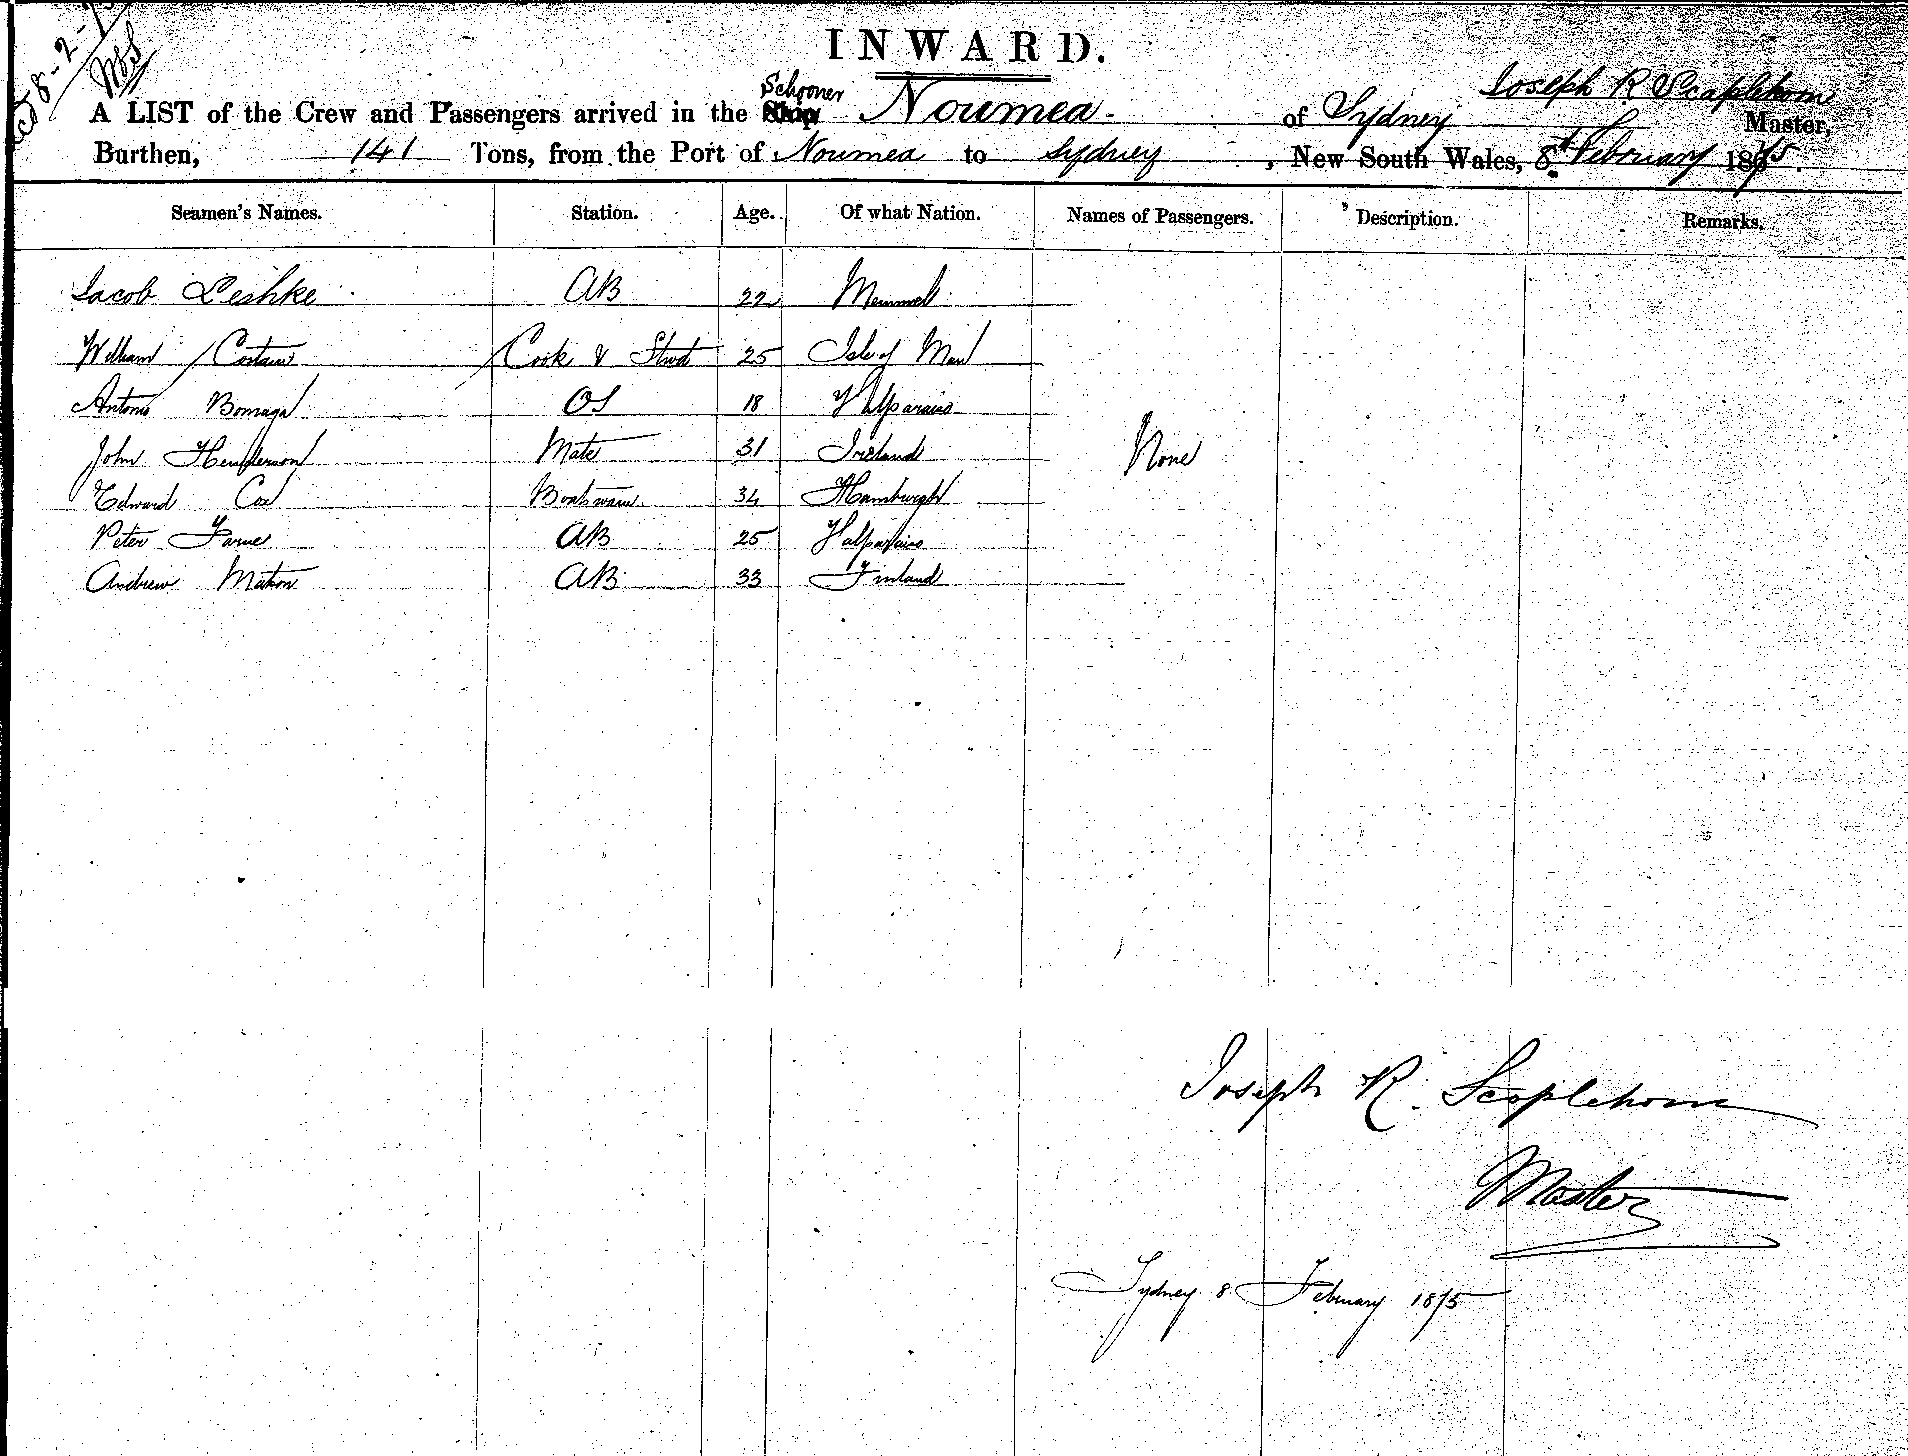 8-2-
INWARD.
Joseph R Scaplehorn
A LIST of the Crew and Passengers arrived in the Schooner Noumea of Sydney Master,
Burthen, 141 Tons, from the Port of Noumea to Sydney, New South Wales, 8th February 1875.
Seamen's Names. Station. Age. Of what Nation. Names of Passengers. Description. Remarks.
Jacob Leshke AB 22 Memmel
William Costain Cook & Stwd 25 Isle of Man
Antonio OS 18 Valparaiso
John Henderson Mate 31 Ireland
None
Edward Cox Boatswain 34 Hamburgh
Peter AB 25 Valparaiso
Andrew AB 33 Finland
Joseph R. Scaplehorn
Master
Sydney 8 February 1875